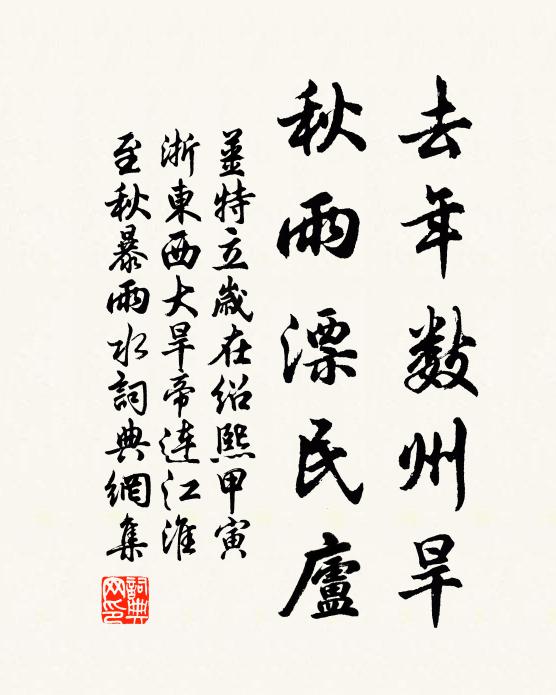 去年數州旱
秋雨漂民廬
薑特立歲在紹熙甲寅
浙東西大旱帝連江淮
至秋暴雨水詞典網集
詞典
网印